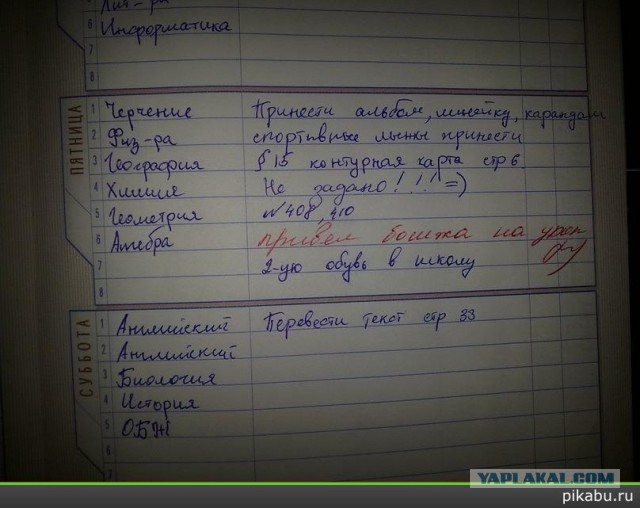 Лит-ра
6 Информатика
7
8
ПЯТНИЦА
1 Черчение Принести альбом, линейку, карандаш
2 Физ-ра спортивные лыжы принести
3 География § 15 контурная карта стр 6.
4 Химия Не задано! !! =)
5 Геометрия №408, 410
6 Алгебра привел бошка на урок
7 2-ую обувь в школу
8
СУББОТА
1 Английский Перевести текст стр 33
2 Английский
3 Биология
4 История
5 ОБЖ
6
7
YAPLAKAL.COM
pikabu.ru